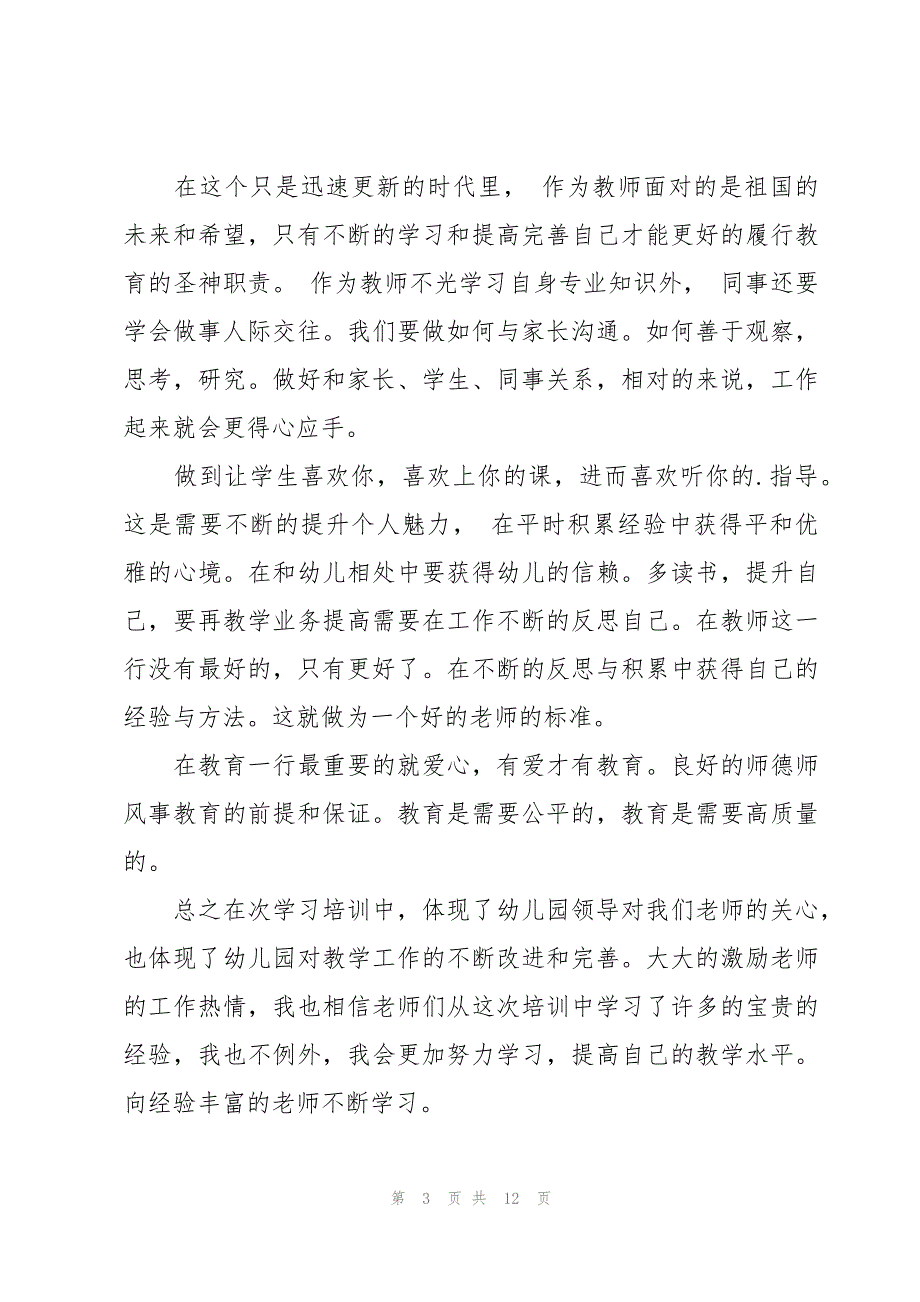 在这个只是迅速更新的时代里， 作为教师面对的是祖国的
未来和希望，只有不断的学习和提高完善自己才能更好的履行教
育的圣神职责。 作为教师不光学习自身专业知识外， 同事还要
学会做事人际交往。我们要做如何与家长沟通。如何善于观察，
思考，研究。做好和家长、学生、同事关系，相对的来说，工作
起来就会更得心应手。
做到让学生喜欢你，喜欢上你的课，进而喜欢听你的.指导。
这是需要不断的提升个人魅力， 在平时积累经验中获得平和优
雅的心境。在和幼儿相处中要获得幼儿的信赖。多读书，提升自
己，要再教学业务提高需要在工作不断的反思自己。在教师这一
行没有最好的，只有更好了。在不断的反思与积累中获得自己的
经验与方法。这就做为一个好的老师的标准。
在教育一行最重要的就爱心，有爱才有教育。良好的师德师
风事教育的前提和保证。教育是需要公平的，教育是需要高质量
的。
总之在次学习培训中，体现了幼儿园领导对我们老师的关心，
也体现了幼儿园对教学工作的不断改进和完善。大大的激励老师
的工作热情，我也相信老师们从这次培训中学习了许多的宝贵的
经验，我也不例外，我会更加努力学习，提高自己的教学水平。
向经验丰富的老师不断学习。
第 3 页 共 12 页